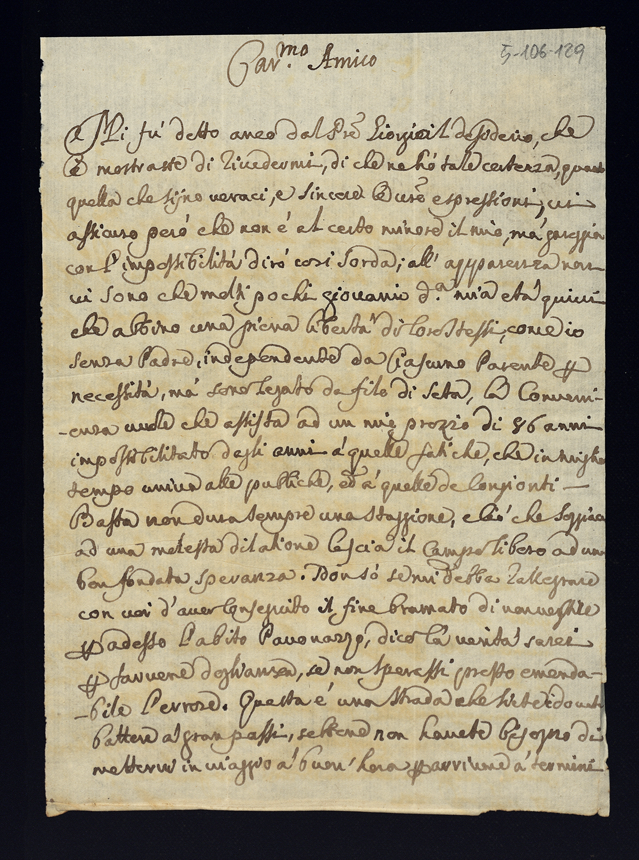 5-106-129
Car.mo Amico
Mi fu' detto anco dal Pre Giorgi il desiderio, che
mostraste di rivedermi, di che ne hó tale certezza, quant
quella che sijno veraci, e sincere le vre espressioni, vi
assicuro peró che non é al certo minore il mio, má gareggia
con l'impossibilitá diró cosi sorda; all' apparenza non
vi sono che molti pochi giovani d.a mia etá quivi
che abbino una piena libertá di loro stessi, come io
senza Padre, independente da Ciascuno Parente p
necessitá, má sono legato da filo di seta, la Conveni
-enza vuole che assista ad un mio prozio di 86 anni
impossibilitato dagli anni á quelle fatiche, che in
tempo univa alle publiche, ed á quelle de Congionti
Basta non dura sempre una staggione, e ció che soggiace
ad una molesta dilatione lascia il Campo libero ad una
ben fondata speranza. Non só se mi debba rallegrare
con voi d'aver Conseguito il fine bramato di non vestire
p adesso l'abito Pavonazzo, dico la veritá sarei
p farvene doglianza, se non sperassi presto emenda-
-bile l'errore. Questa é una strada che siete
battere á gran passi, sebbene non havete bisogno di
mettervi in viaggio á buon' hora p arrivare á termini